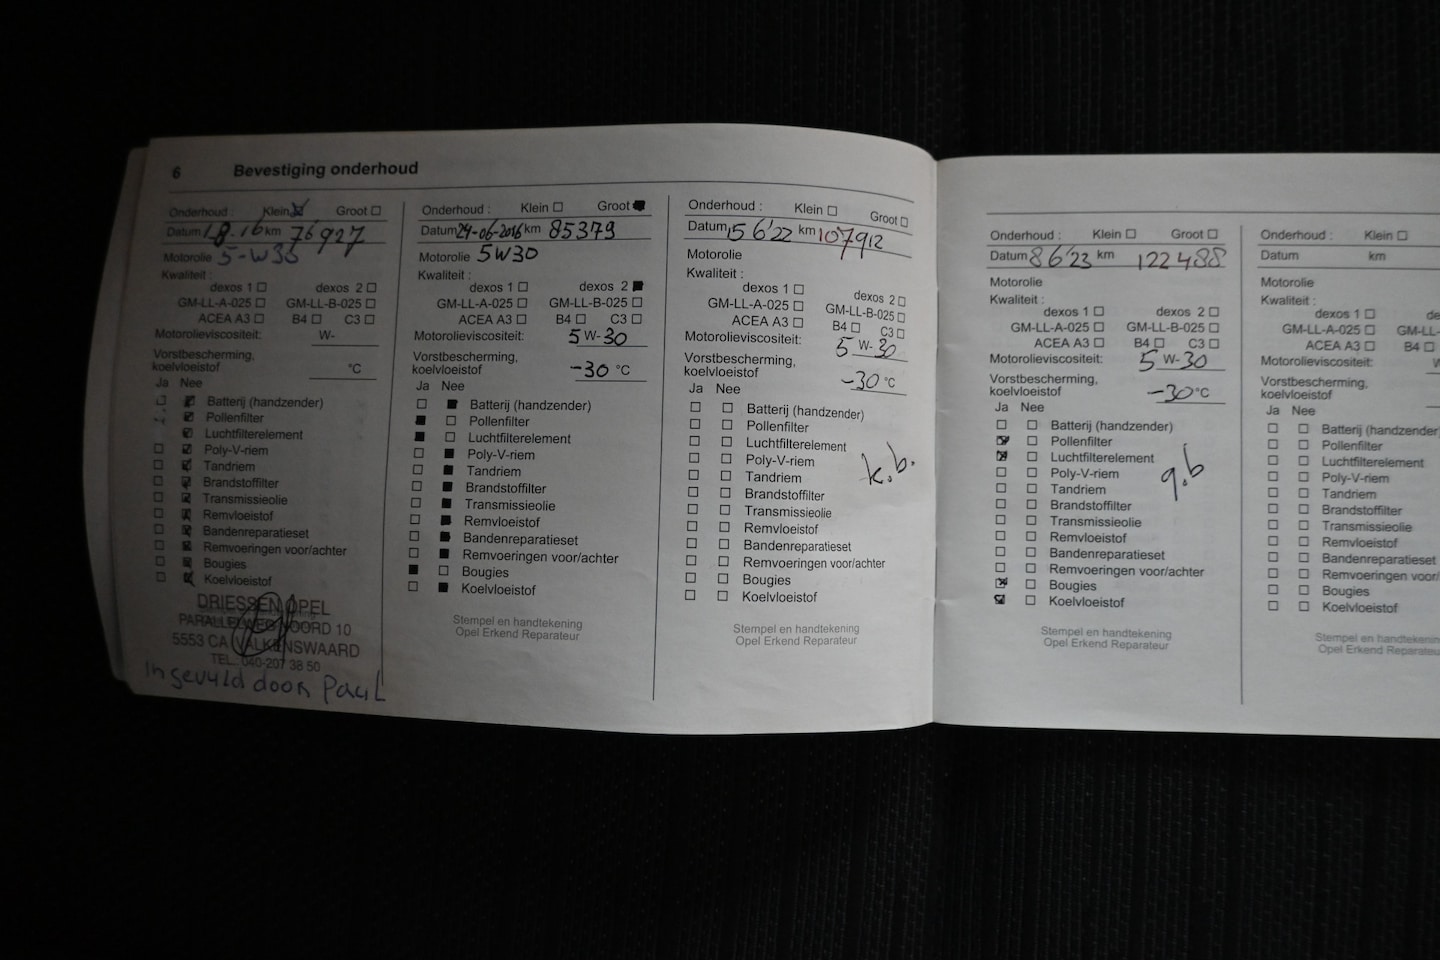 6 Bevestiging onderhoud
Onderhoud : Klein Groot
Datum 18-16 km 76927
Motorolie 5-W30
Kwaliteit :
dexos 1 dexos 2
GM-LL-A-025 GM-LL-B-025
ACEA A3 B4 C3
Motorolieviscositeit: W-
Vorstbescherming,
koelvloeistof °C
Ja Nee
Batterij (handzender)
Pollenfilter
Luchtfilterelement
Poly-V-riem
Tandriem
Brandstoffilter
Transmissieolie
Remvloeistof
Bandenreparatieset
Remvoeringen voor/achter
Bougies
Koelvloeistof
DRIESSEN OPEL
PARALLELWEG NOORD 10
5553 CA VALKENSWAARD
TEL.: 040-207 38 50
Ingevuld door Paul
Onderhoud : Klein Groot
Datum 24-06-2016 km 85379
Motorolie 5W30
Kwaliteit :
dexos 1 dexos 2
GM-LL-A-025 GM-LL-B-025
ACEA A3 B4 C3
Motorolieviscositeit: 5 W-30
Vorstbescherming,
koelvloeistof -30 °C
Ja Nee
Batterij (handzender)
Pollenfilter
Luchtfilterelement
Poly-V-riem
Tandriem
Brandstoffilter
Transmissieolie
Remvloeistof
Bandenreparatieset
Remvoeringen voor/achter
Bougies
Koelvloeistof
Stempel en handtekening
Opel Erkend Reparateur
Onderhoud : Klein Groot
Datum 15 6'22 km 107912
Motorolie
Kwaliteit :
dexos 1 dexos 2
GM-LL-A-025 GM-LL-B-025
ACEA A3 B4 C3
Motorolieviscositeit: 5 W-30
Vorstbescherming,
koelvloeistof -30 °C
Ja Nee
Batterij (handzender)
Pollenfilter
Luchtfilterelement
Poly-V-riem
Tandriem
k.b.
Brandstoffilter
Transmissieolie
Remvloeistof
Bandenreparatieset
Remvoeringen voor/achter
Bougies
Koelvloeistof
Stempel en handtekening
Opel Erkend Reparateur
Onderhoud : Klein Groot
Datum 8 6'23 km 122488
Motorolie
Kwaliteit :
dexos 1 dexos 2
GM-LL-A-025 GM-LL-B-025
ACEA A3 B4 C3
Motorolieviscositeit: 5 W-30
Vorstbescherming,
koelvloeistof -30 °C
Ja Nee
Batterij (handzender)
Pollenfilter
Luchtfilterelement
Poly-V-riem
g.b
Tandriem
Brandstoffilter
Transmissieolie
Remvloeistof
Bandenreparatieset
Remvoeringen voor/achter
Bougies
Koelvloeistof
Stempel en handtekening
Opel Erkend Reparateur
Onderhoud : Klein
Datum km
Motorolie
Kwaliteit :
dexos 1 de
GM-LL-A-025 GM-LL-
ACEA A3 B4
Motorolieviscositeit:
Vorstbescherming,
koelvloeistof
Ja Nee
Batterij (handzender
Pollenfilter
Luchtfilterelement
Poly-V-riem
Tandriem
Brandstoffilter
Transmissieolie
Remvloeistof
Bandenreparatieset
Remvoeringen voor/
Bougies
Koelvloeistof
Stempel en handtekening
Opel Erkend Reparateur